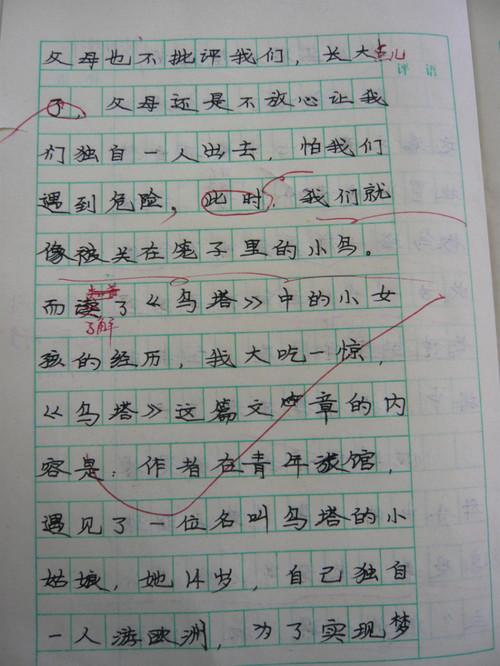 父母也不批评我们，长大点儿
评语
了，父母还是不放心让我
们独自一人出去，怕我们
遇到危险，此时，我们就
像被关在笼子里的小鸟。
而读了《乌塔》中的小女
了解
孩的经历，我大吃一惊，
《乌塔》这篇文章的内
容是：作者在青年旅馆，
遇见了一位名叫乌塔的小
姑娘，她14岁，自己独自
一人游欧洲，为了实现梦